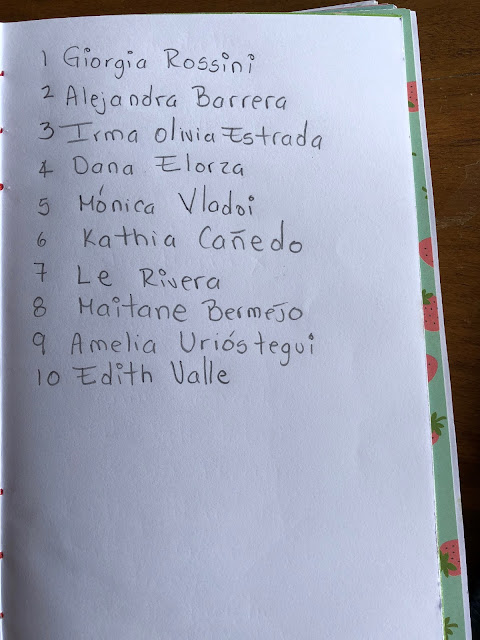 1 Giorgia Rossini
2 Alejandra Barrera
3 Irma Olivia Estrada
4 Dana Elorza
5 Mónica Vladoi
6 Kathia Cañedo
7 Le Rivera
8 Maitane Bermejo
9 Amelia Urióstegui
10 Edith Valle